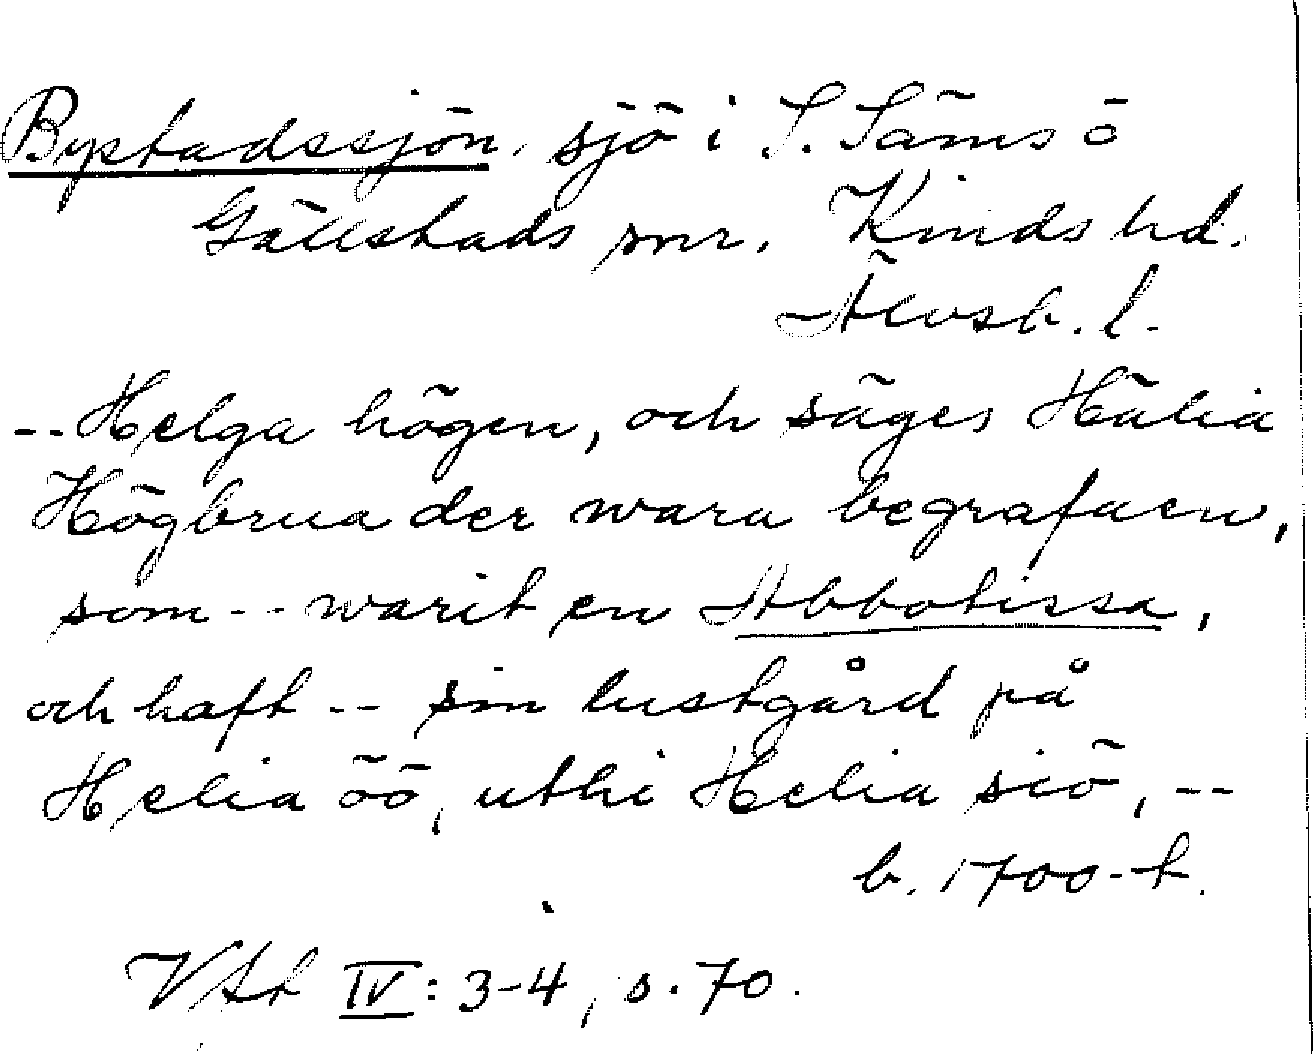 Bystadssjön, sjö i S. Säms o
Gällstads snr. Kinds hd.
Älvsb. l.
-- Helga högen, och säges Hälia
Högbrua der wara begrafuen,
som -- warit en Abbotissa,
och haft -- sin lustgård på
Helia öö, uthi Helia siö, --
b. 1700-t.
VFt IV: 3-4, s. 70.